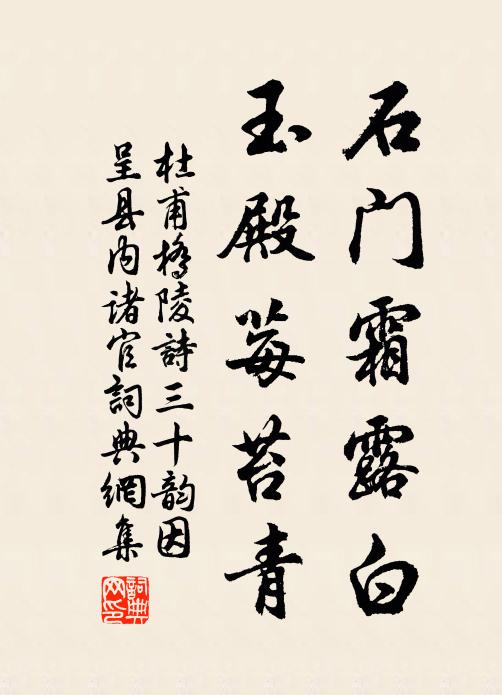 石门霜露白
玉殿莓苔青
杜甫橋陵詩三十韵因
呈县内诸官詞典網集
詞典网印